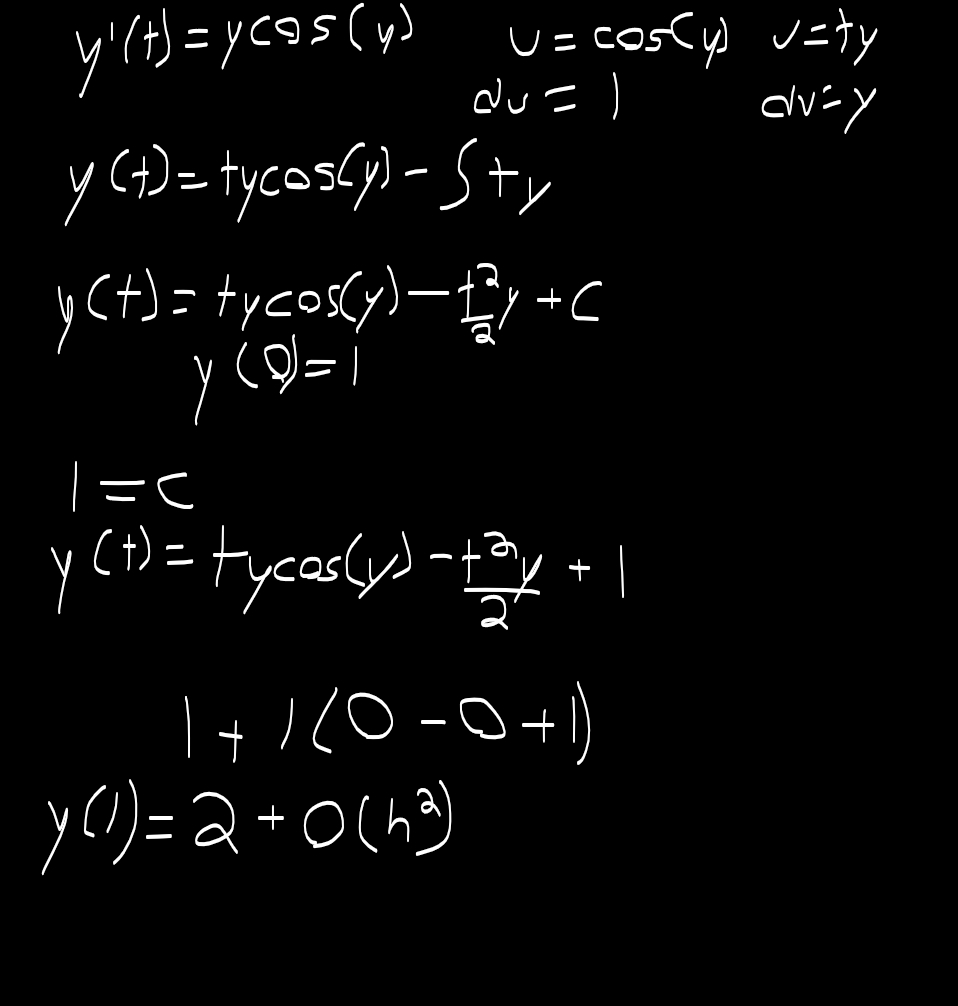 y'(t) = ycos(y) u = cos(y) v = ty
du = 1 dv = y
y(t) = tycos(y) - ∫ty
y(t) = tycos(y) - t²/2 y + c
y(0) = 1
1 = c
y(t) = tycos(y) - t²y/2 + 1
1 + 1(0 - 0 + 1)
y(1) = 2 + O(h²)